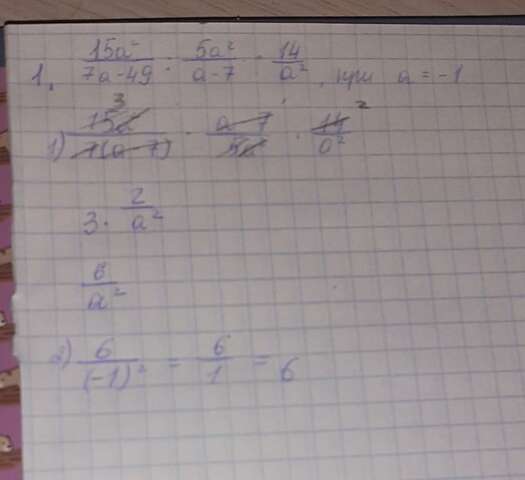 1. 15a²/(7a-49) : 5a²/(a-7) · 14/a², при a = -1
1) 3 15a²/7(a-7) · a-7/5a² · 14/a² 2
3 · 2/a²
6/a²
2) 6/(-1)² = 6/1 = 6